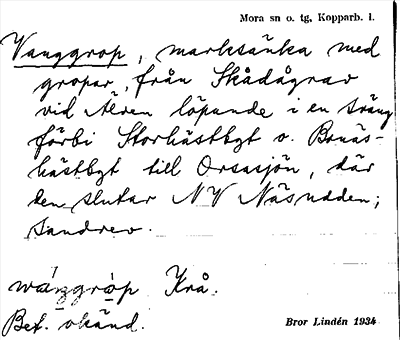 Mora sn o. tg, Kopparb. l.
Vanggrop, marksänka med
gropar, från Skådågrav
vid Åeren löpande i en sträng
förbi Storhästbyt o. Bonäs-
hästbyt till Orsasjön, där
den slutar NV Näsudden;
sandrev.
wánggròp Krå.
Bet. okänd.
Bror Lindén 1934